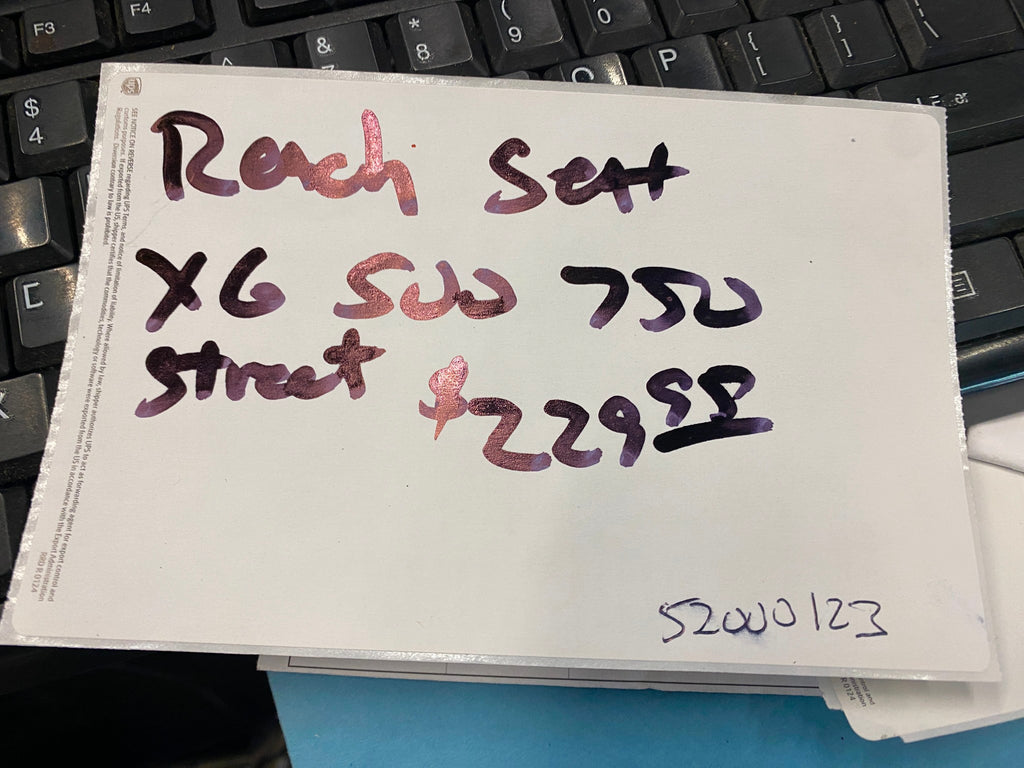 Reach Seat
XG 500 750
street $229 99
52000123
SEE NOTICE ON REVERSE regarding UPS Terms, and notice of limitation of liability. Where allowed by law, shipper authorizes UPS to act as forwarding agent for export control and
customs purposes. If exported from the US, shipper certifies that the commodities, technology or software were exported from the US in accordance with the Export Administration
Regulations. Diversion contrary to law is prohibited.
RRD R 0124
ups
F3
F4
$
4
&
*
8
(
9
)
0
P
{
[
}
]
|
\
E
R 0124